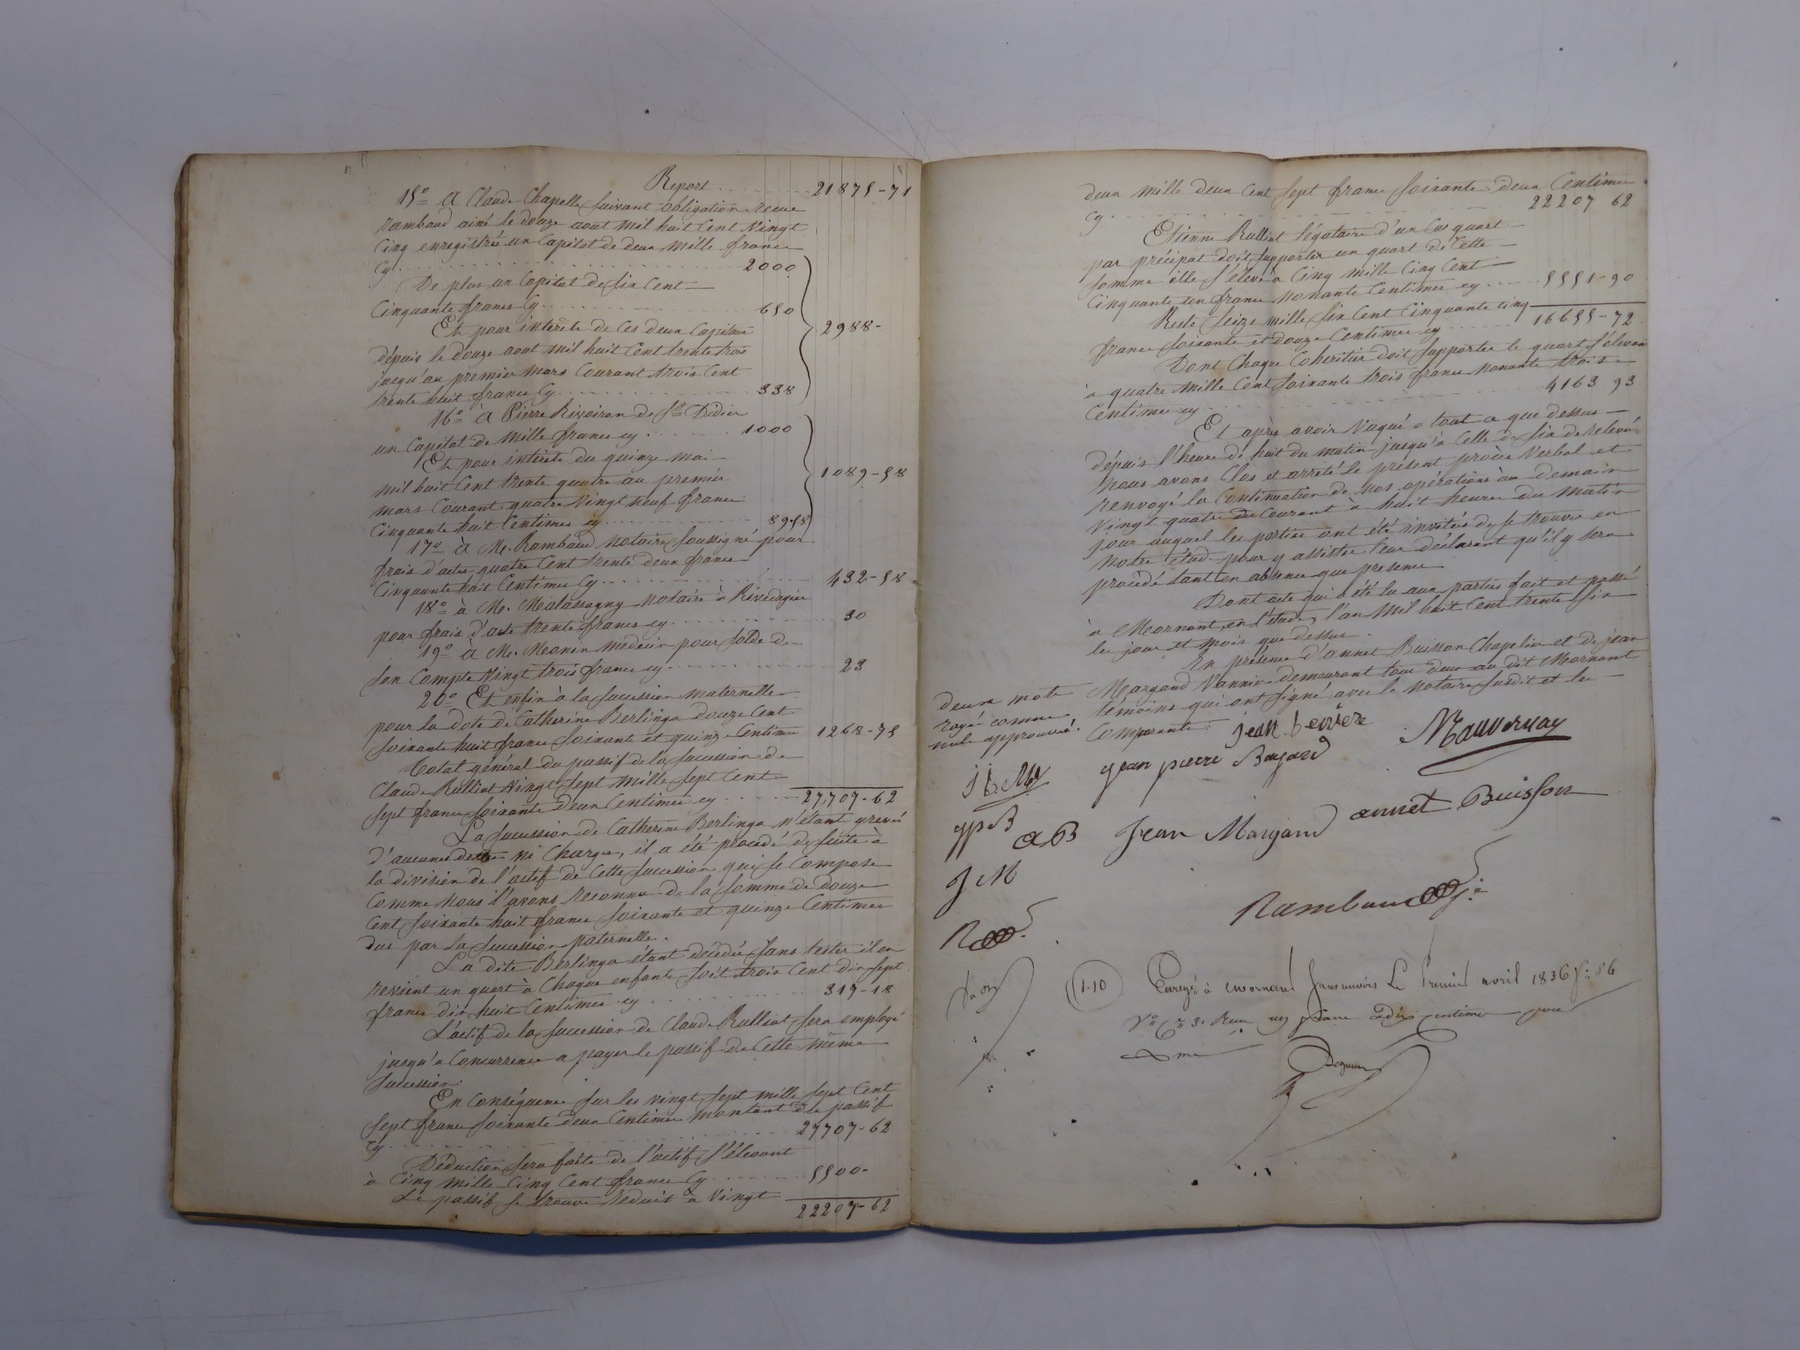 Report ........ 21875-71
15° A Claude Chapelle suivant obligation recue
Rambaud ainé le douze aout mil huit cent vingt
cinq enregistrée un capital de deux mille francs
cy ........ 2000
De plus un capital de six cent
cinquante francs cy ........ 650
Et pour intérêts de ces deux capitaux
2988-
depuis le douze aout mil huit cent trente trois
jusqu'au premier mars courant trois cent
trente huit francs cy ........ 338
16° à Pierre Rivoiron de St Didier
un capital de mille francs cy ........ 1000
Et pour intérêts du quinze mai
mil huit cent trente quatre au premier
1089-58
mars courant quatre vingt neuf francs
cinquante huit centimes cy ........ 89-58
17° à Me. Rambaud notaire soussigné pour
frais d'actes quatre cent trente deux francs
cinquante huit centimes cy ........ 432-58
18° à Me. Malassagny notaire à Rivedegier
pour frais d'acte trente francs cy ........ 30
19° à Mr. Monin médecin pour solde de
son compte vingt trois francs cy ........ 23
20° Et enfin à la succession maternelle
pour la dote de Catherine Berlinga douze cent
soixante huit francs soixante et quinze centimes 1268-75
Total général du passif de la succession de
Claude Rulliat vingt sept mille sept cent
sept francs soixante deux centimes cy ........ 27707-62
La succession de Catherine Berlinga n'étant grevée
d'aucunes dettes ni charges, il a été procédé de suite à
la division de l'actif de cette succession qui se compose
comme nous l'avons reconnu de la somme de douze
cent soixante huit francs soixante et quinze centimes
dus par la succession paternelle.
La dite Berlinga étant décédée sans tester il en
revient un quart à chaque enfant soit trois cent dix sept
francs dix huit centimes cy ........ 317-18
L'actif de la succession de Claude Rulliat sera employé
jusqu'à concurrence a payer le passif de cette même
succession.
En conséquence sur les vingt sept mille sept cent
sept francs soixante deux centimes montant du passif
cy ........ 27707-62
Déduction sera faite de l'actif s'élevant
à cinq mille cinq cent francs cy ........ 5500-
Le passif se trouve réduit à vingt
22207-62
deux mille deux cent sept francs soixante deux centimes
cy ........ 22207 62
Etienne Rulliat légataire d'un quart
par précipat doit supporter un quart de cette
somme elle s'élève à cinq mille cinq cent
cinquante un francs nonante centimes cy ........ 5551-90
Reste seize mille six cent cinquante cinq
francs soixante et douze centimes cy ........ 16655-72
Dont chaque cohéritier doit supporter le quart s'élevant
à quatre mille cent soixante trois francs nonante trois
centimes cy ........ 4163 93
Et après avoir vaqué à tout ce que dessus
depuis l'heure de huit du matin jusqu'à celle de six de relevée
nous avons clos et arrêté le présent procès verbal et
renvoyé la continuation de nos opérations au demain
vingt quatre du courant à huit heures du matin
jour auquel les parties ont été invitées de se trouver en
notre étude pour y assister leur déclarant qu'il y sera
procédé tant en absence que présence
Dont acte qui a été lu aux parties fait et passé
à Mornant, en l'étude, l'an mil huit cent trente six
les jour et mois que dessus.
En présence d'annet Buisson chapelier et de jean
Margand vannier demeurant tous deux au dit Mornant
témoins qui ont signé avec le notaire susdit et les
comparants.
deux mots
rayés comme
nuls approuvé.
jean
Mauvernay
jean pierre Bajard
jp B
a B
Jean Margand
annet Buisson
J M
Rambaud
1-10
Enregé à mornant le premier avril 1836 fo 86